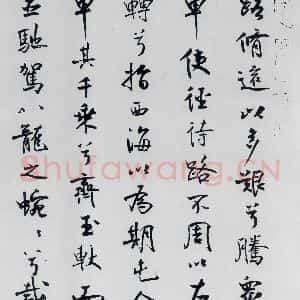 路脩遠以多艱兮騰眾
車使徑待路不周以左
轉兮指西海以為期屯余
車其千乘兮齊玉軑而
並馳駕八龍之蜿〻兮載
Shufawang.CN